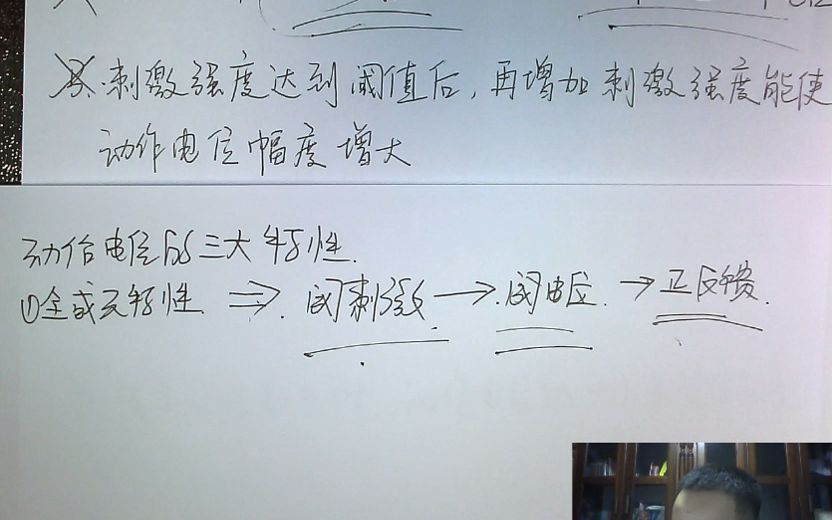 B. 刺激强度达到阈值后,再增加刺激强度能使
动作电位幅度增大
动作电位的三大特性.
①全或无特性 ⇒ 阈刺激 → 阈电位. → 正反馈.